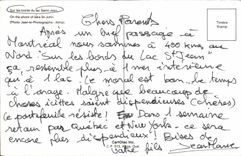 Sur les bords du lac Saint-Jean
On the shore of lake St-John
Chers Parents
Après un bref passage à
Montréal nous sommes à 400 kms au
Nord. Sur les bords du Lac St Jean
ça ressemble plus à 1 mer intérieure
qu'à 1 lac. Le moral est bon, le temps
à l'orage. Malgré que beaucoup de
choses icittes soient dispendieuses (chères)
le portefeuille résiste! Dans 1 semaine
retain par Québec et New York - ce sera
encore plus dispendieux! Bises de
votre fils Jean Marc
Timbre
Stamp